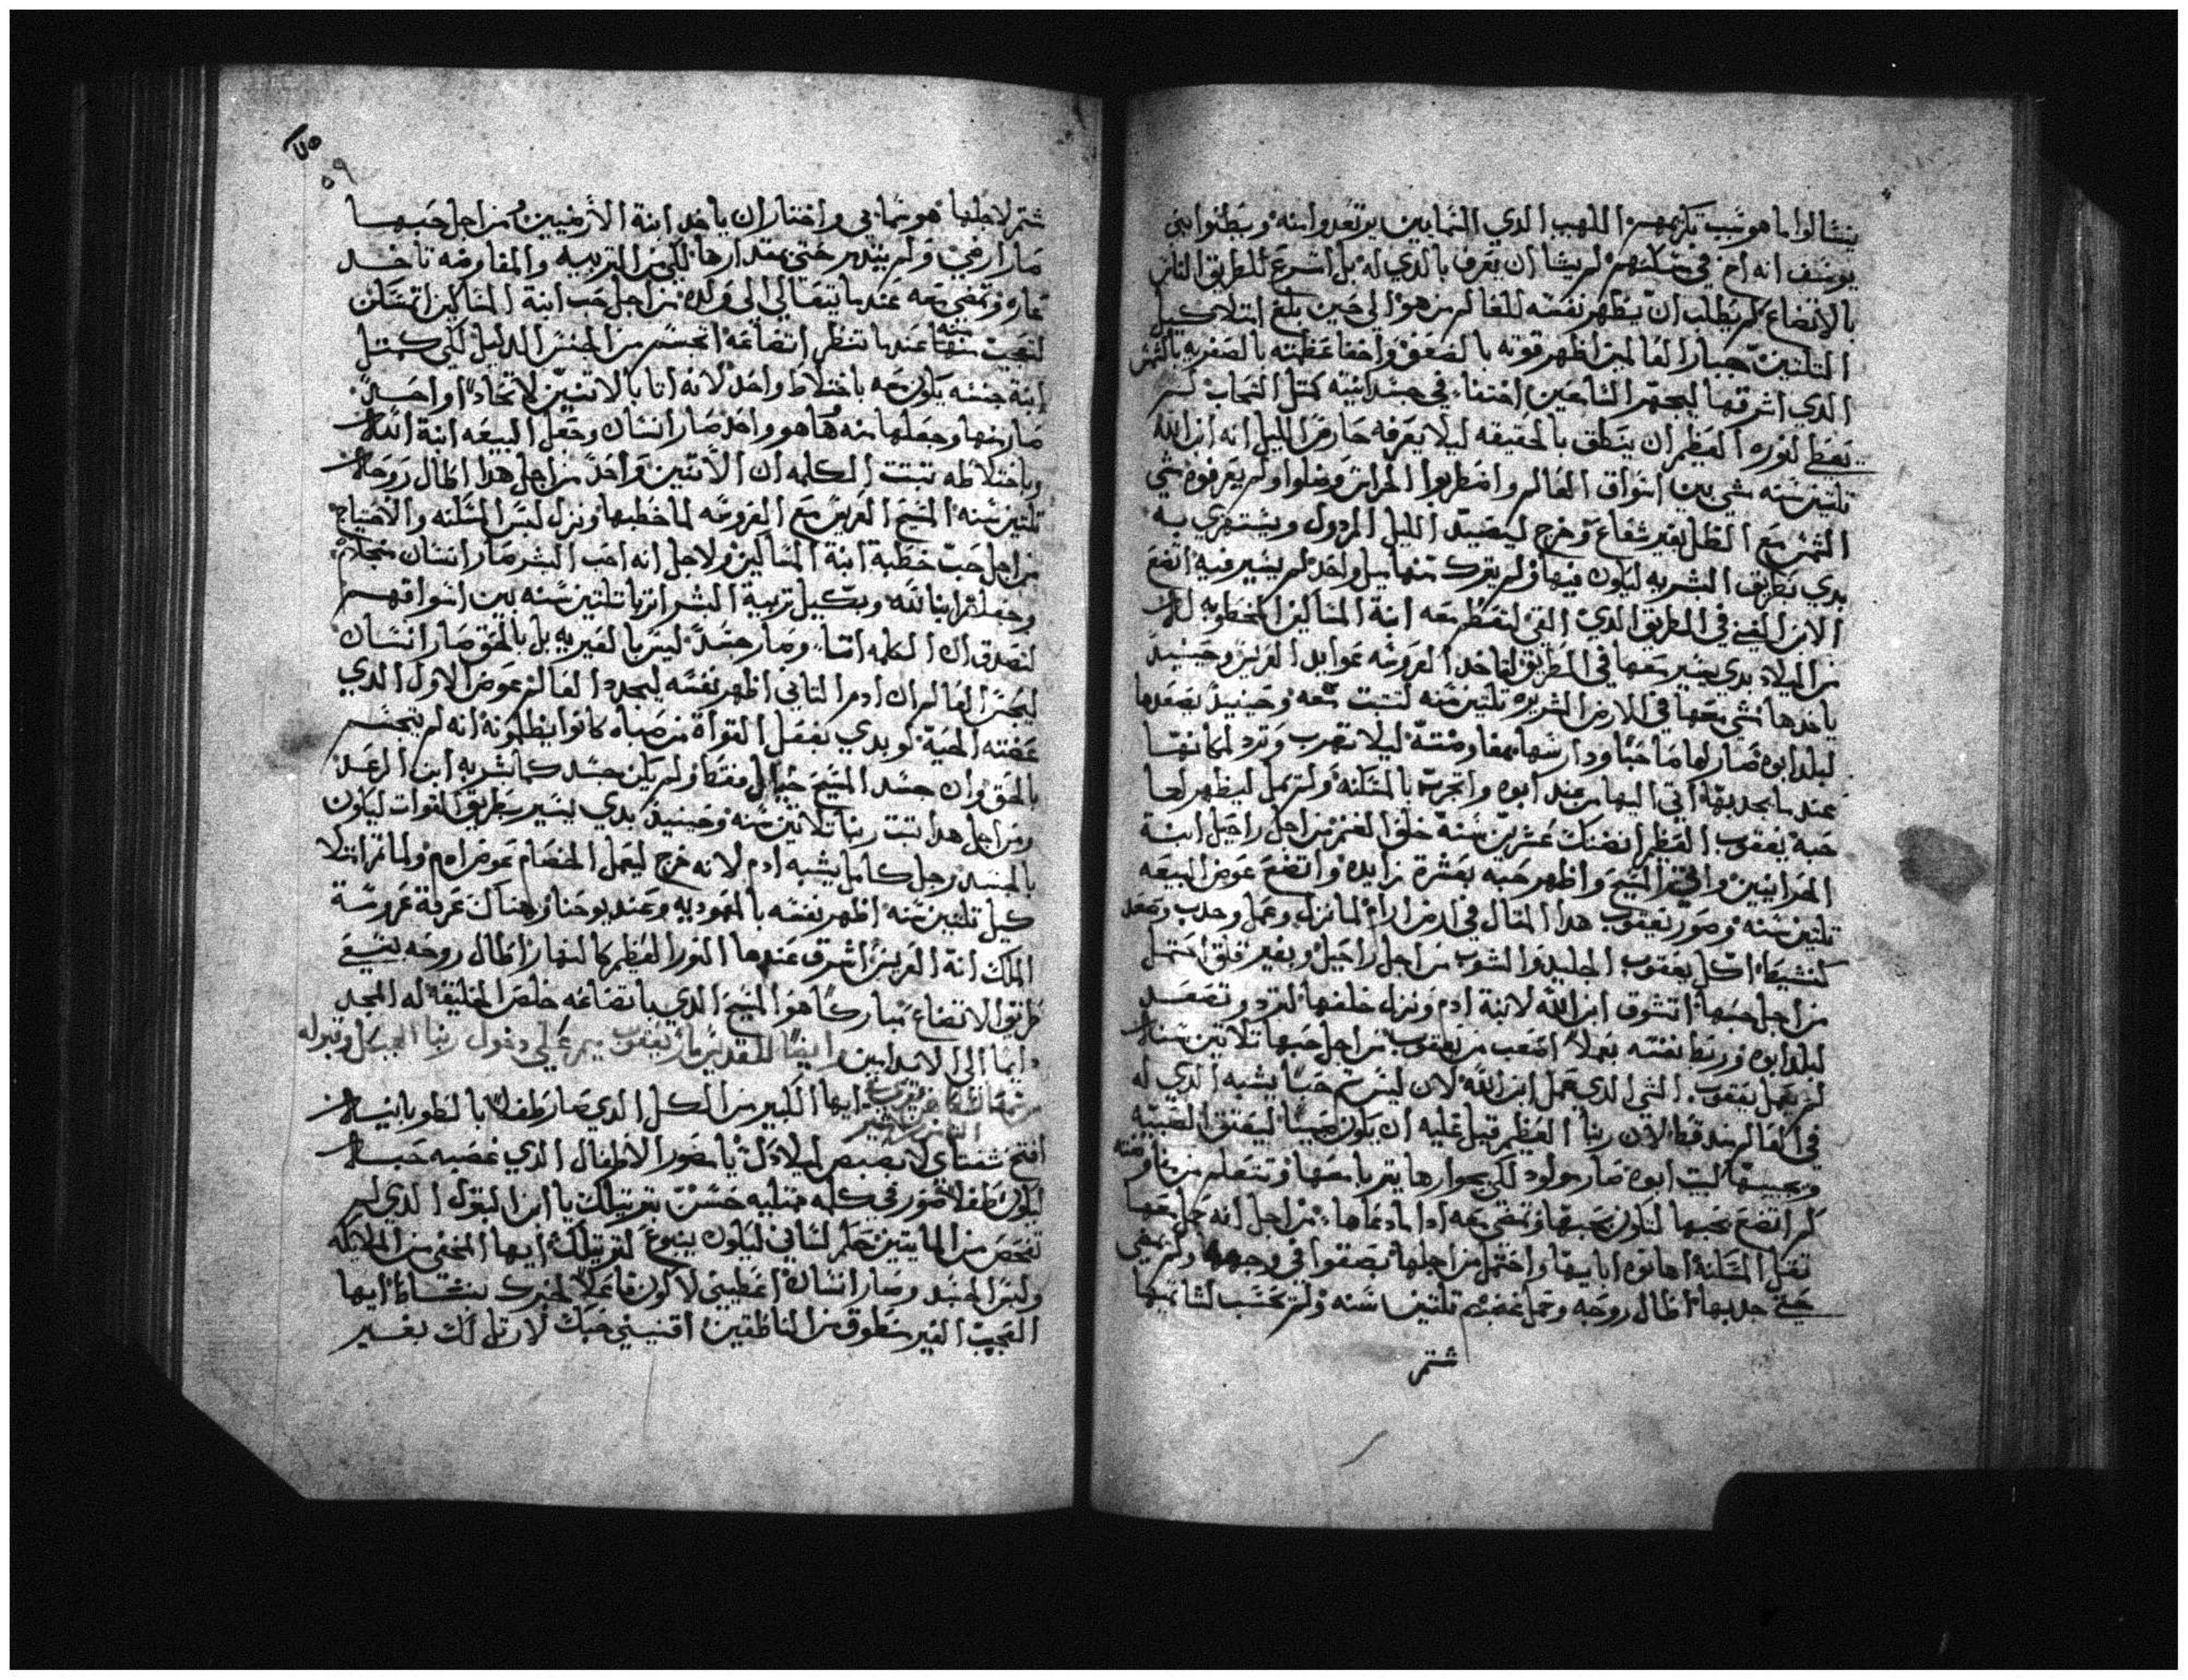 يتسالوا ما هو سبب تكريمهم اللهب الذي السمايين يرتعدوا منه ويطنوا بني
يوسف انه اخ في مسكنهم لم يشا ان يعرف بالذي له بل اسرع للطريق الثاني
بالاتضاع لم يطلب ان يظهر نفسه للعالم من هو الى حين بلغ امتلا كيل
التلتين جبار العالمين اظهر قوته بالضعف واخفا عظمته بالصغر به بالشمس
الذي اشرقها ليجهر الساعين اختفا في جسدانيته كمثل السحاب لم
يعط لنوره العظيم ان ينطق بالحقيقه ليلا يعرفه حارص الليل انه ابن الله
تلتين سنه مشي بين اسواق العالم واضطربوا الحراس وضلوا ولم يعرفوه مشي
الشمس مع الظل بغير شعاع وخرج ليصيد الليل المردول ويستهزي به
بدي بطريق البشريه ليكون فيها ولم يترك منها ميل واحد لم يسير فيه اتضع
الابن الغني في الطريق الذي اتى لتفطر معه ابنة المساكين المخطوبه له
من الميلاد بدي يسير معها في الطريق لتاخد العروسه عوايد العريس وحينيد
ياخدها مشي معها في الارض الغريبه تلتين سنه لتتبت معه وحينيد يصعدها
لبلد ابوه صار لها صاحبا ودارسها بمفاوضته ليلا تهرب وترد لمكانها
عندما يجدبها اتى اليها من عند ابوه واتجرب بالمسكنه ولم يمل ليظهر لها
حبه يعقوب العظيم انضنك عشرين سنه خلف الغنم من اجل راحيل ابنة
الحرانيين واتى المسيح واظهر حبه بعشرة زايده واتضع عوض البيعه
تلتين سنه وصور يعقوب هدا المتال في ارض ارام لما نزل وعمل وجدب وصعد
كنشيط اكل يعقوب الجليد والشوب من اجل راحيل وبغير قلق احتمل
من اجل حبها اتشوق ابن الله لابنة ادم ونزل خلفها لترد وتصعد
لبلد ابوه وربط نفسه بعملا اصعب من يعقوب من اجل حبها تلاتين سنه
لم يعمل يعقوب الشي الذي عمل ابن الله لان ليس تم حبا يشبه الذي له
في العالم مند قط لان ربنا العظيم قبل عليه ان يكون صبيا ليعتق الصبيه
ويجيبها لبيت ابوه صار مولود لكي بجوارها يتربا معها وتتعلم من مفاوضته
كم اتضع بحبها لتكون بحبها وتمضي معه ادا ما دعاها من اجل انه حمل معها
تقل المسكنه اهانوه ابايها واحتمل من اجلها بصقوا في وجهه ولم يمضي
حتى جدبها اطال روحه وحمل غضبهم تلتين سنه ولم يحسب لشاتميها
شتم
٥٩
شتم لاجلها هو سمايي واختار ان ياخد ابنة الارضيين من اجل حبها
صار ارضي ولم يتدبر حتى بمقدارها لكي من التربيه والمفاوضه تاخد
عاره وتمضي معه عندما يتعالى الى ولده من اجل حب ابنة المساكين اتمسكن
لتعجب منه عندما تنظر اتضاعه اتجسم من الجنس الدليل لكي كمتل
ابنة جنسه يكون معه باختلاط واحد لانه اتا بالاتنين لاتحادا واحد
صار منها وجعلها منه ها هو واحد صار انسان وجعل البيعه ابنة الله
وباختلاطه تبتت الكلمه ان الاتنين واحد من اجل هدا اطال روحه
تلتين سنه المسيح العريس مع العروسه لما خطبها ونزل لبس المسكنه والاحتياج
من اجل حب خطبة ابنة المساكين ولاجل انه احب البشر صار انسان متجلا
وجعلهم ابنا لله وبكيل تربية البشر اتربا تلتين سنه بين اسواقهم
لنصدق ان الكلمه اتسا وصار جسدا ليس بالغيريه بل بالحق صار انسان
ليحس العالم ان ادم التاني اظهر نفسه ليجدد العالم عوض الاول الذي
عضته الحيه لو بدي بفعل القواة من صباه كانوا يظنونه انه لم يتجسم
بالحق وان جسد المسيح خيال فقط ولم يكن جسد كما شربه ابن الرعد
ومن اجل هدا تبت ربنا تلاتين سنه وحينيد بدي ليسير بطريق القوات ليكون
بالجسد رجل كامل يشبه ادم لانه خرج ليعمل الخصام عوض ادم ولما تم امتلا
كيل تلتين سنه اظهر نفسه بالمعموديه وعند يوحنا وهناك عرفة عروسة
الملك انه العريس اشرق عندها النور العظيم كالنهار اطال روحه بسعي
طريق الاتضاع مبارك هو المسيح الذي باتضاعه خلص الخليقه له المجد
دايما الى الابد امين وايضا للقديس مار يعقوب ميمر على دخول ربنا الهيكل وقبوله
ايها الكبير من الكل الذي صار طفلا بالطوبانيه
افتح شفتاي لانصبص لميلادك يا مصور الاطفال الذي غضبه حبه
ليكون طفلا صور في كلمه ممتليه حسن ترتيلك يا ابن البتول الذي لم
تفحص من المايتين حل لساني ليكون ينبوع لترتيلك ايها المخفي من الملايكه
ولبس الجسد وصار انسان اعطيني لاكون فاعلا لخبرك بنشاط ايها
العجيب الغير منطوق من الناطقين اقنيني حبك لارتل لك بغير